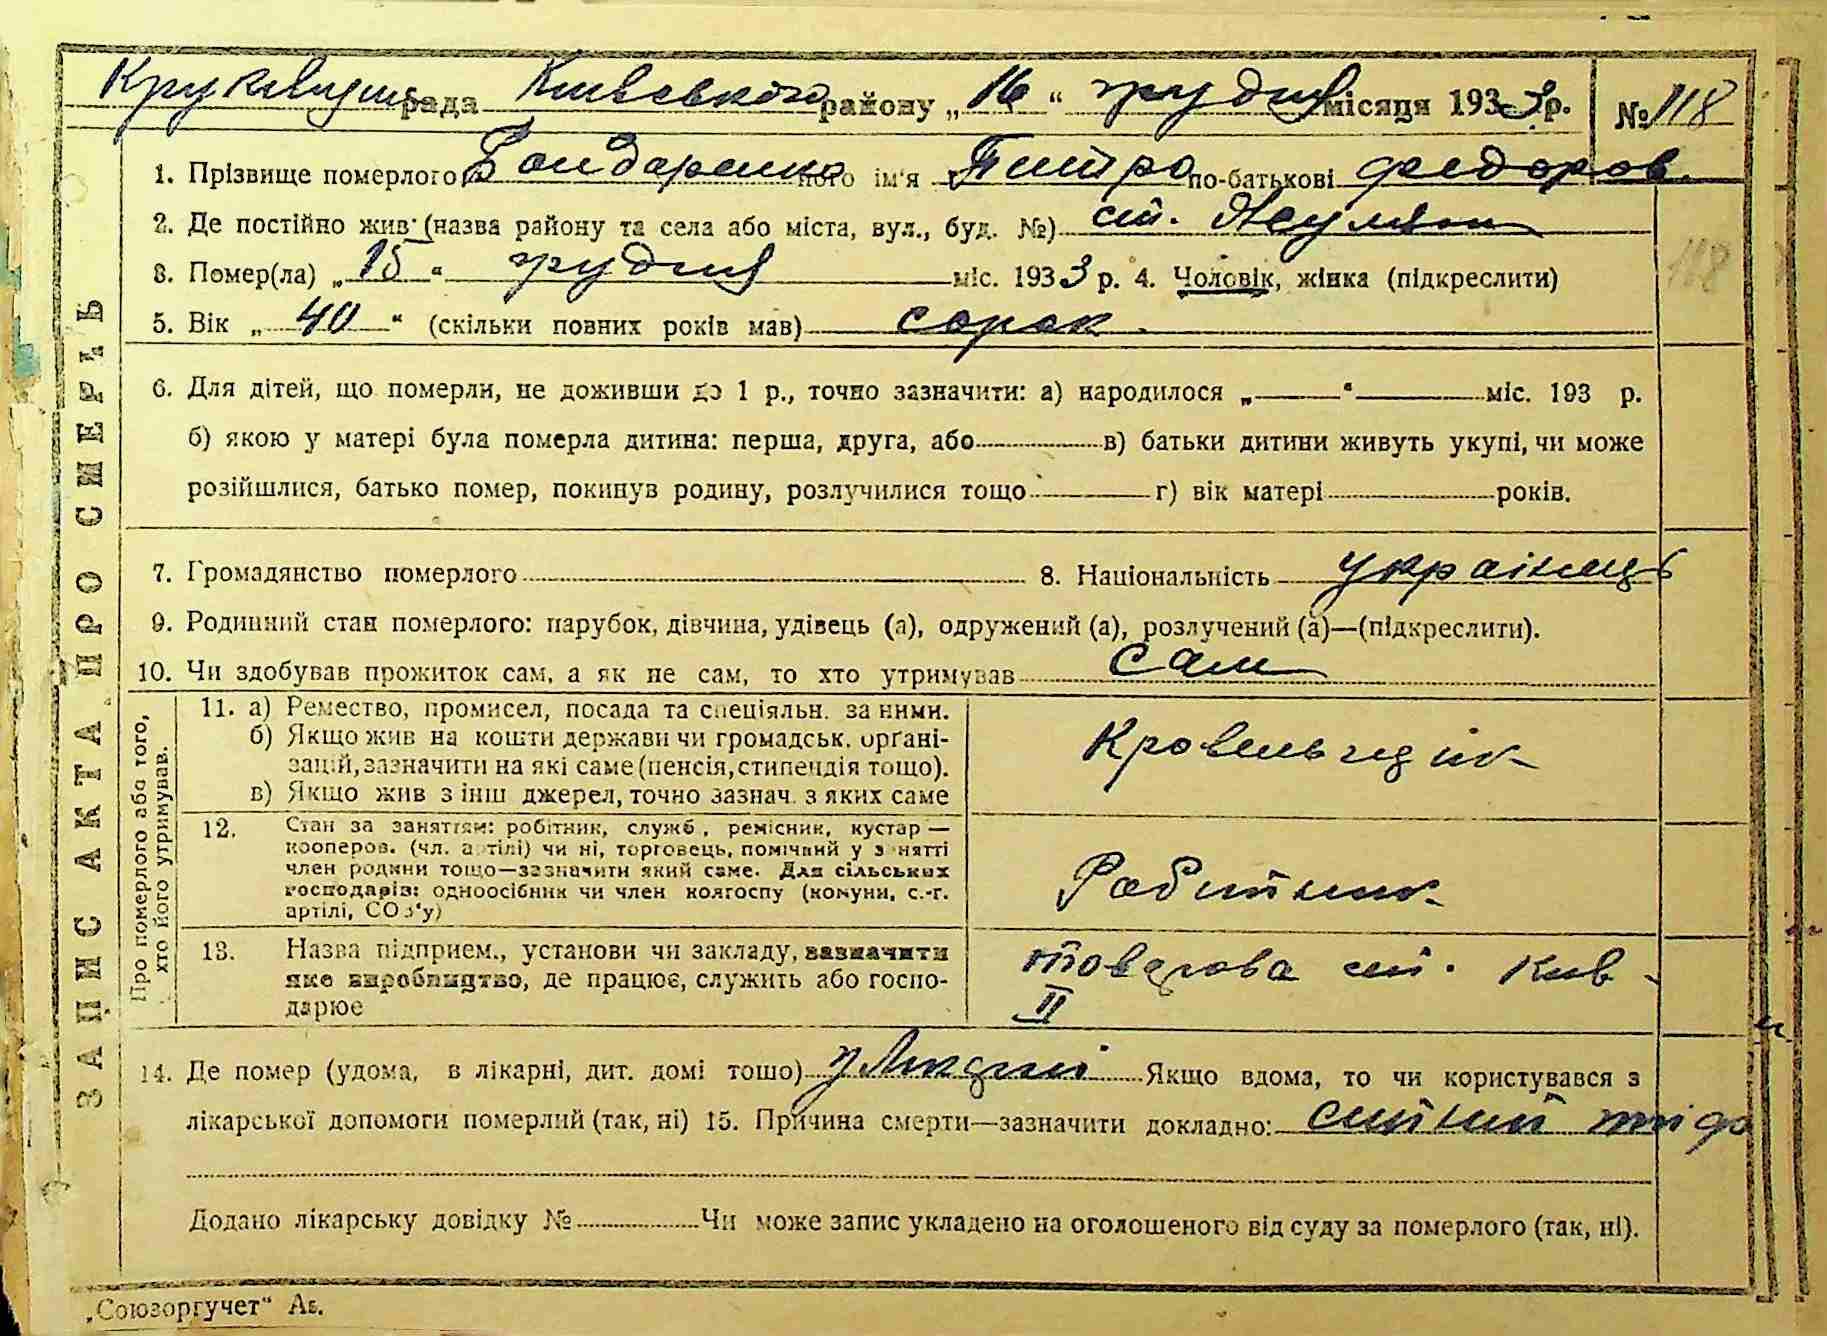 рада Київського району „16“ грудня місяця 1933 р. № 118
1. Прізвище померлого Бондаренко його ім'я Питро по-батькові федоров.
2. Де постійно жив (назва району та села або міста, вул., буд. №) ст.
118
3. Помер(ла) „15“ грудня міс. 1933 р. 4. Чоловік, жінка (підкреслити)
5. Вік „40“ (скільки повних років мав) сорок.
6. Для дітей, що померли, не доживши до 1 р., точно зазначити: а) народилося „ “ міс. 193 р.
б) якою у матері була померла дитина: перша, друга, або в) батьки дитини живуть укупі, чи може
розійшлися, батько помер, покинув родину, розлучилися тощо г) вік матері років.
7. Громадянство померлого 8. Національність українець
9. Родинний стан померлого: парубок, дівчина, удівець (а), одружений (а), розлучений (а)—(підкреслити).
10. Чи здобував прожиток сам, а як не сам, то хто утримував сам
ЗАПИС АКТА ПРО СМЕРТЬ
Про померлого або того,
хто його утримував.
11. а) Ремество, промисел, посада та спеціяльн. за ними.
б) Якщо жив на кошти держави чи громадськ. органі-
зацій, зазначити на які саме (пенсія, стипендія тощо).
в) Якщо жив з інш джерел, точно зазнач. з яких саме
Кровельщик
12. Стан за заняттям: робітник, служб., ремісник, кустар —
кооперов. (чл. артілі) чи ні, торговець, помічний у занятті
член родини тощо—зазначити який саме. Для сільських
господарів: одноосібник чи член колгоспу (комуни, с.-г.
артілі, СОЗ'у)
Робитник
13. Назва підприєм., установи чи закладу, зазначити
яке виробництво, де працює, служить або госпо-
дарює
товарова ст. Киів
II
14. Де помер (удома, в лікарні, дит. домі тощо) у Якщо вдома, то чи користувався з
лікарської допомоги померлий (так, ні) 15. Причина смерти—зазначити докладно:
Додано лікарську довідку № Чи може запис укладено на оголошеного від суду за померлого (так, ні).
„Союзоргучет“